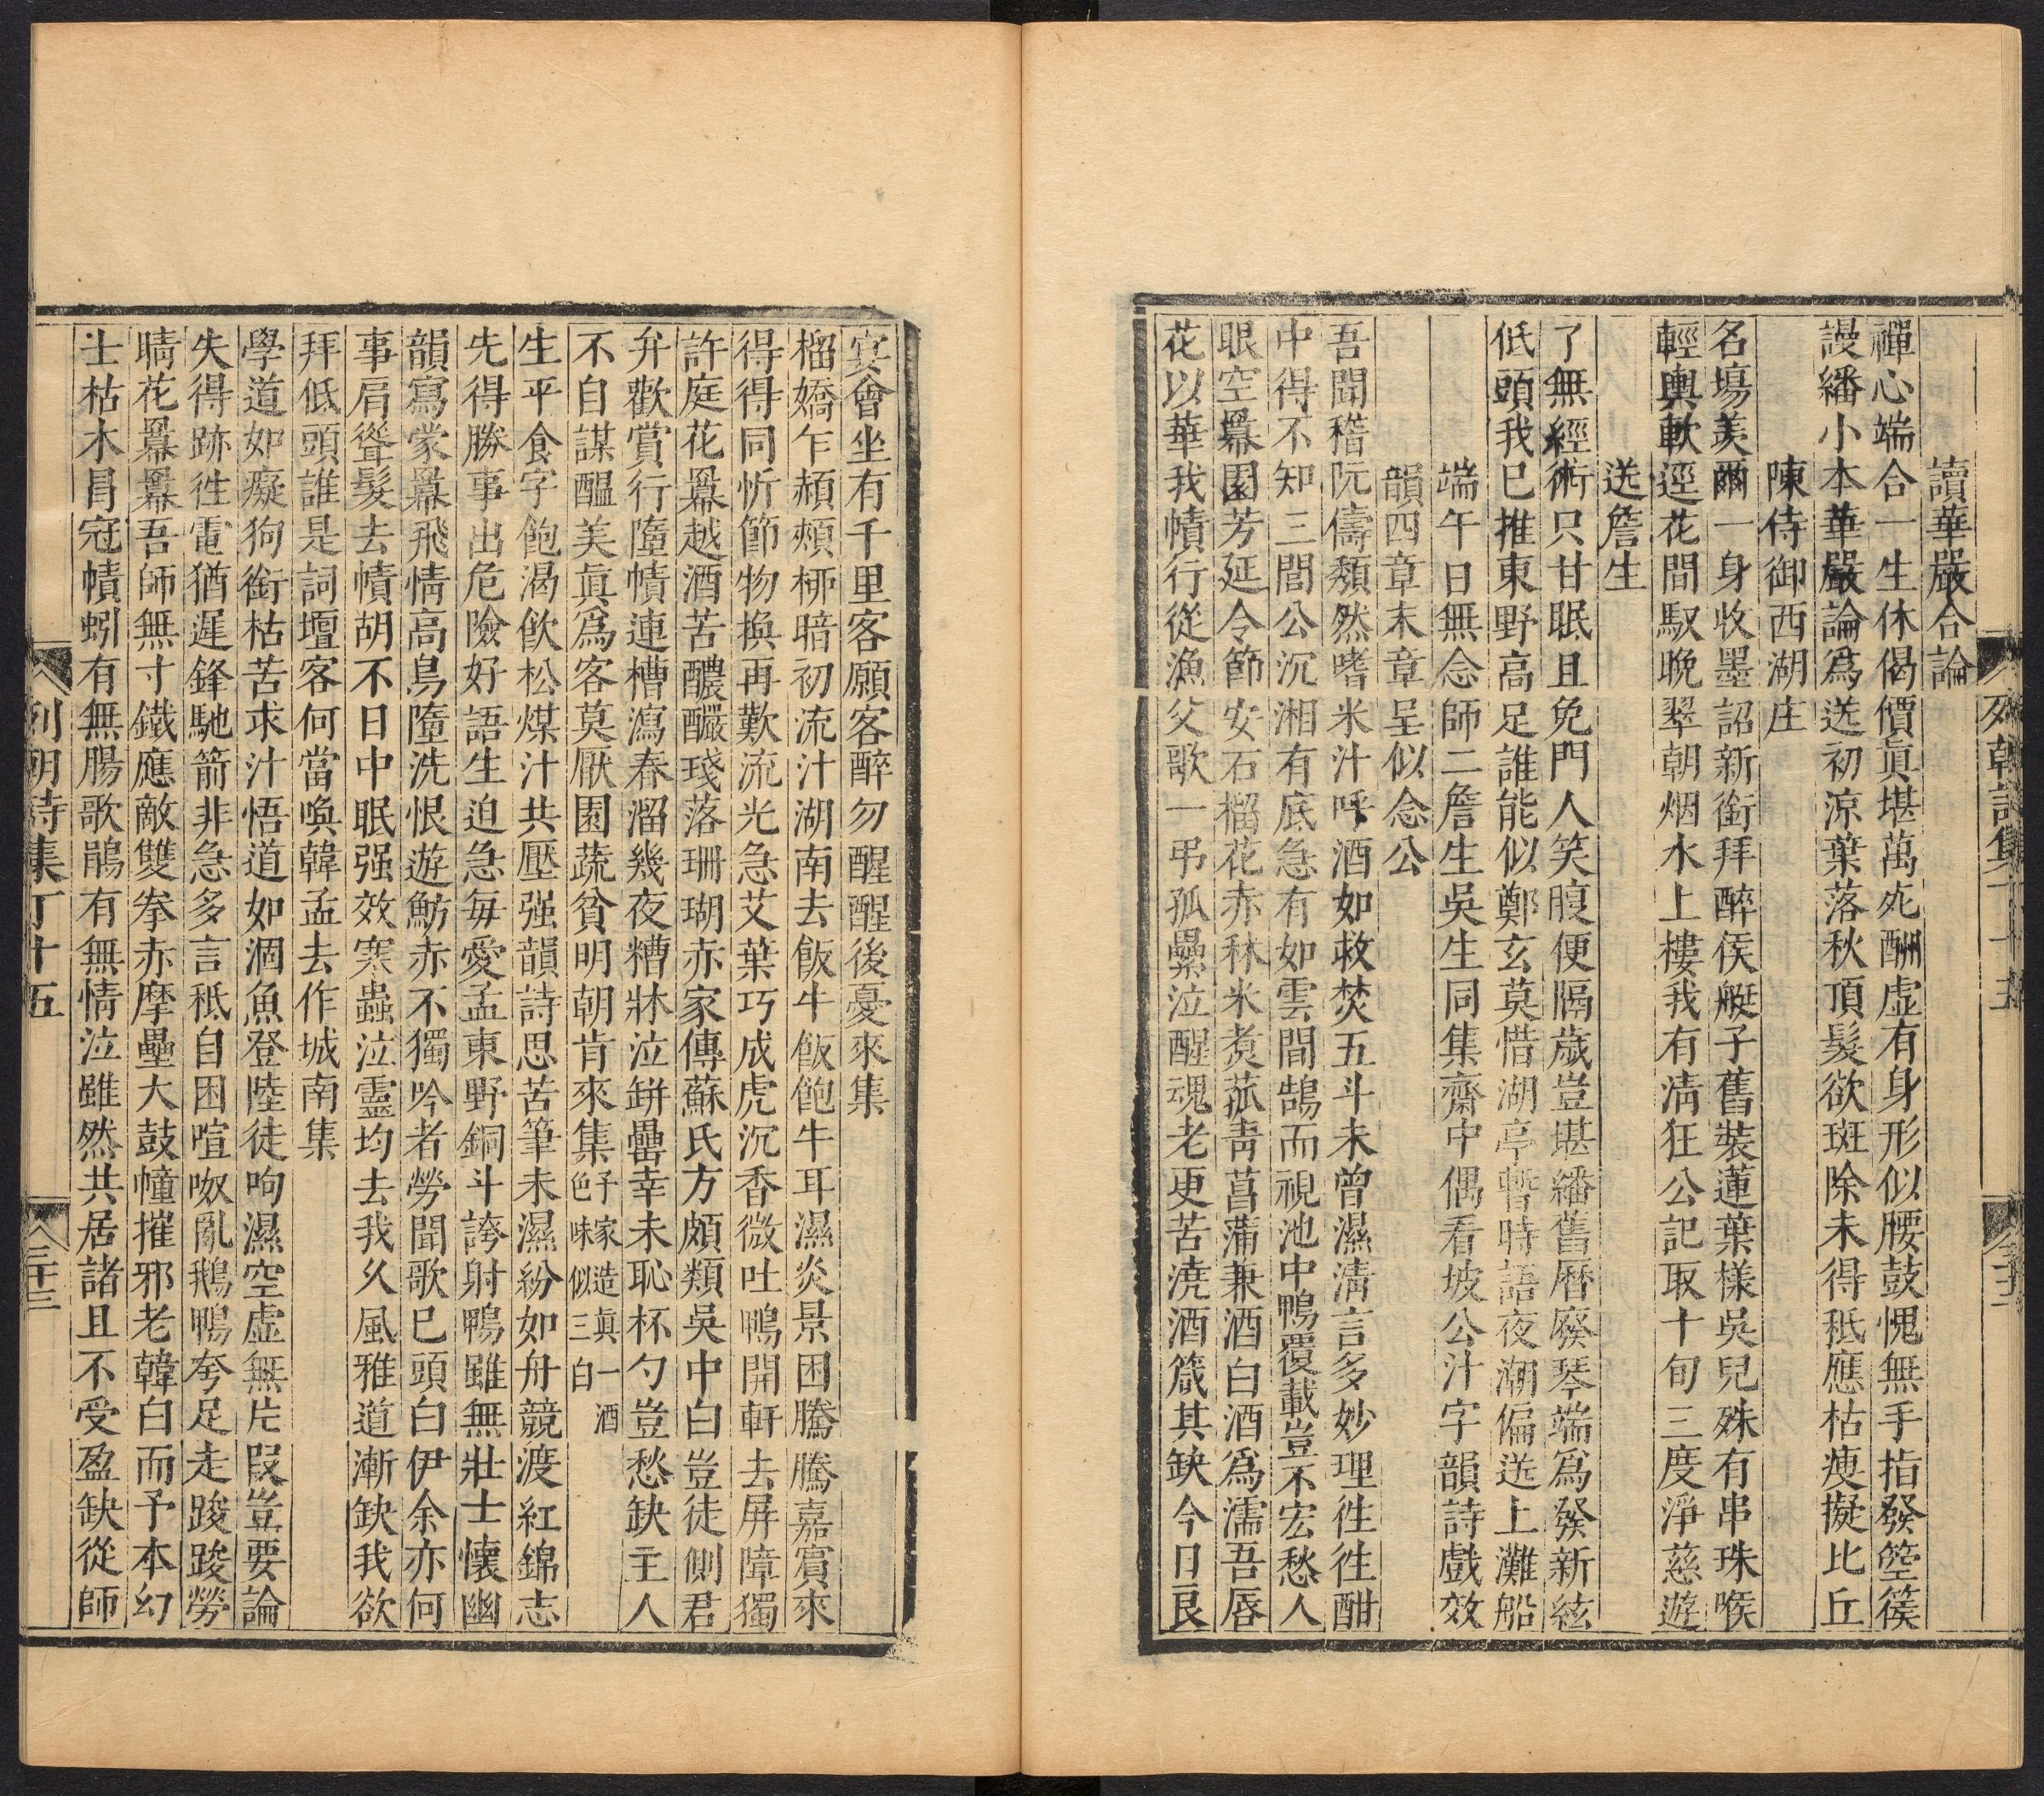 讀華嚴合論
禪心端合一生休偈價真堪萬死酬虛有身形似腰鼓愧無手指發箜篌
謾繙小本華嚴論為送初涼葉落秋頂髮欲斑除未得秪應枯瘦擬比丘
陳侍御西湖庄
名塲羨爾一身收墨詔新銜拜醉侯艇子舊裝蓮葉樣吳兒殊有串珠喉
輕輿軟逕花間馭晚翠朝烟水上樓我有淸狂公記取十旬三度淨慈遊
送詹生
了無經術只甘眠且免門人笑腹便隔歲豈堪繙舊曆廢琴端為發新絃
低頭我已推東野高足誰能似鄭玄莫惜湖亭暫時語夜潮偏送上灘船
端午日無念師二詹生吳生同集齋中偶看坡公汁字韻詩戲效
韻四章末章呈似念公
吾聞稽阮儔頹然嗜米汁呼酒如救焚五斗未曾濕淸言多妙理徃徃酣
中得不知三閭公沉湘有底急有如雲間鵠而視池中鴨覆載豈不宏愁人
眼空羃園芳延令節安石榴花赤秫米煑菰靑菖蒲兼酒白酒為濡吾唇
花以華我幘行從漁父歌一弔孤纍泣醒魂老更苦澆酒箴其缺今日良
宴會坐有千里客願客醉勿醒醒後憂來集
榴嬌乍頳頰栁暗初流汁湖南去飯牛飯飽牛耳濕炎景困騰騰嘉賓來
得得同忻節物換再歎流光急艾葉巧成虎沉香微吐鴨開軒去屏障獨
許庭花羃越酒苦醲釅琖落珊瑚赤家傳蘇氏方頗類吳中白豈徒側君
弁歡賞行墮幘連槽瀉春溜幾夜糟牀泣缾罍幸未恥杯勺豈愁缺主人
不自謀醞美眞為客莫厭園蔬貧明朝肯來集子家造眞一酒色味似三白
生平食字飽渴飮松煤汁共壓强韻詩思苦筆未濕紛如舟競渡紅錦志
先得勝事出危險好語生迫急每愛孟東野銅斗誇射鴨雖無壯士懷幽
韻寫蒙羃飛情高鳥墮洗恨遊魴赤不獨吟者勞聞歌已頭白伊余亦何
事肩聳髮去幘胡不日中眠强效寒蟲泣靈均去我久風雅道漸缺我欲
拜低頭誰是詞壇客何當喚韓孟去作城南集
學道如癡狗銜枯苦求汁悟道如涸魚登陸徒呴濕空虛無片叚豈要論
失得跡徃電猶遲鋒馳箭非急多言秪自困喧呶亂鵝鴨夸足走踆踆勞
睛花羃羃吾師無寸鐵應敵雙拳赤摩壘大鼓幢摧邪老韓白而予本幻
士枯木肙冠幘蚓有無腸歌鵑有無情泣雖然共居諸且不受盈缺從師
列朝詩集丁十五
列朝詩集丁十五
三十三